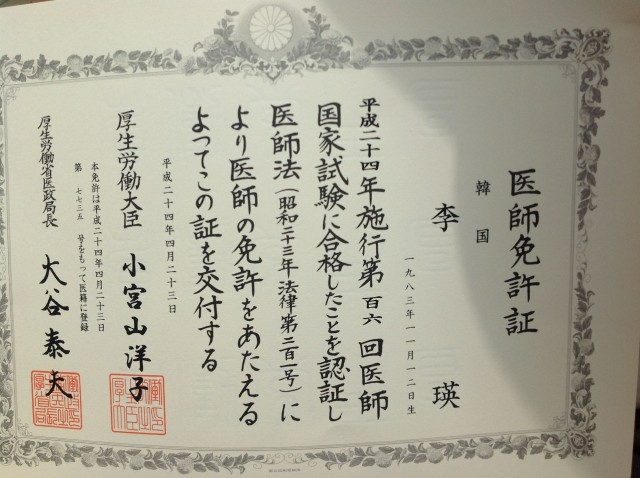 医師免許証
韓国
李瑛
一九八三年一一月一二日生
平成二十四年施行第百六回医師
国家試験に合格したことを認証し
医師法（昭和二十三年法律第二百一号）に
より医師の免許をあたえる
よってこの証を交付する
平成二十四年四月二十三日
厚生労働大臣 小宮山洋子
本免許は平成二十四年四月二十三日
第 七七三五 号をもって医籍に登録
厚生労働省医政局長 大谷泰夫